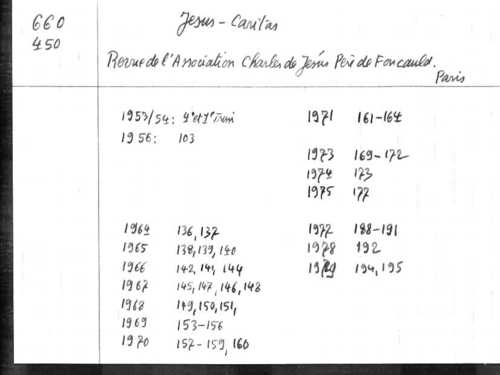 660
450
Jesus-Caritas
Revue de l'Association Charles de Jésus Père de Foucauld.
Paris
1953/54: 4e et 1e Trim
1956: 103
1964 136, 137
1965 138, 139, 140
1966 142, 141, 144
1967 145, 147, 146, 148
1968 149, 150, 151,
1969 153-156
1970 157-159, 160
1971 161-164
1973 169-172
1974 173
1975 177
1977 188-191
1978 192
1979 194, 195